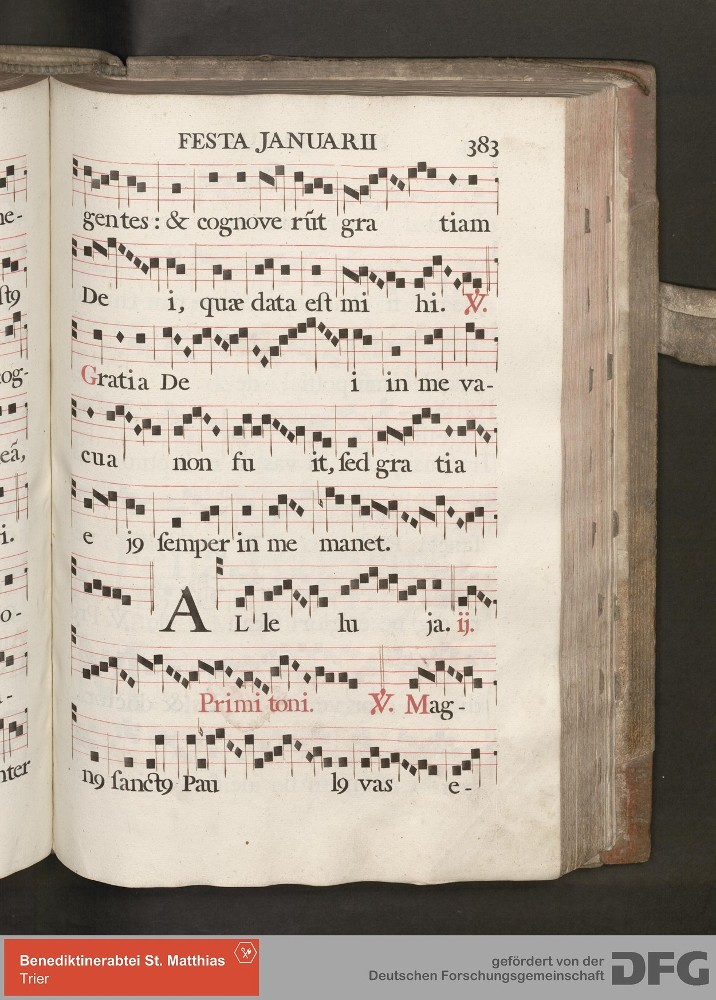 FESTA JANUARII 383
gentes : & cognove rūt gra tiam
De i, quæ data est mi hi. ℣.
Gratia De i in me va-
cua non fu it, sed gra tia
e jꝰ semper in me manet.
AL le lu ja. ij.
Primi toni. ℣. Mag-
nꝰ sanctꝰ Pau lꝰ vas e-
ne-
stꝰ
cog-
eā,
i.
o-
-
nter
Benediktinerabtei St. Matthias
Trier
gefördert von der
Deutschen Forschungsgemeinschaft DFG